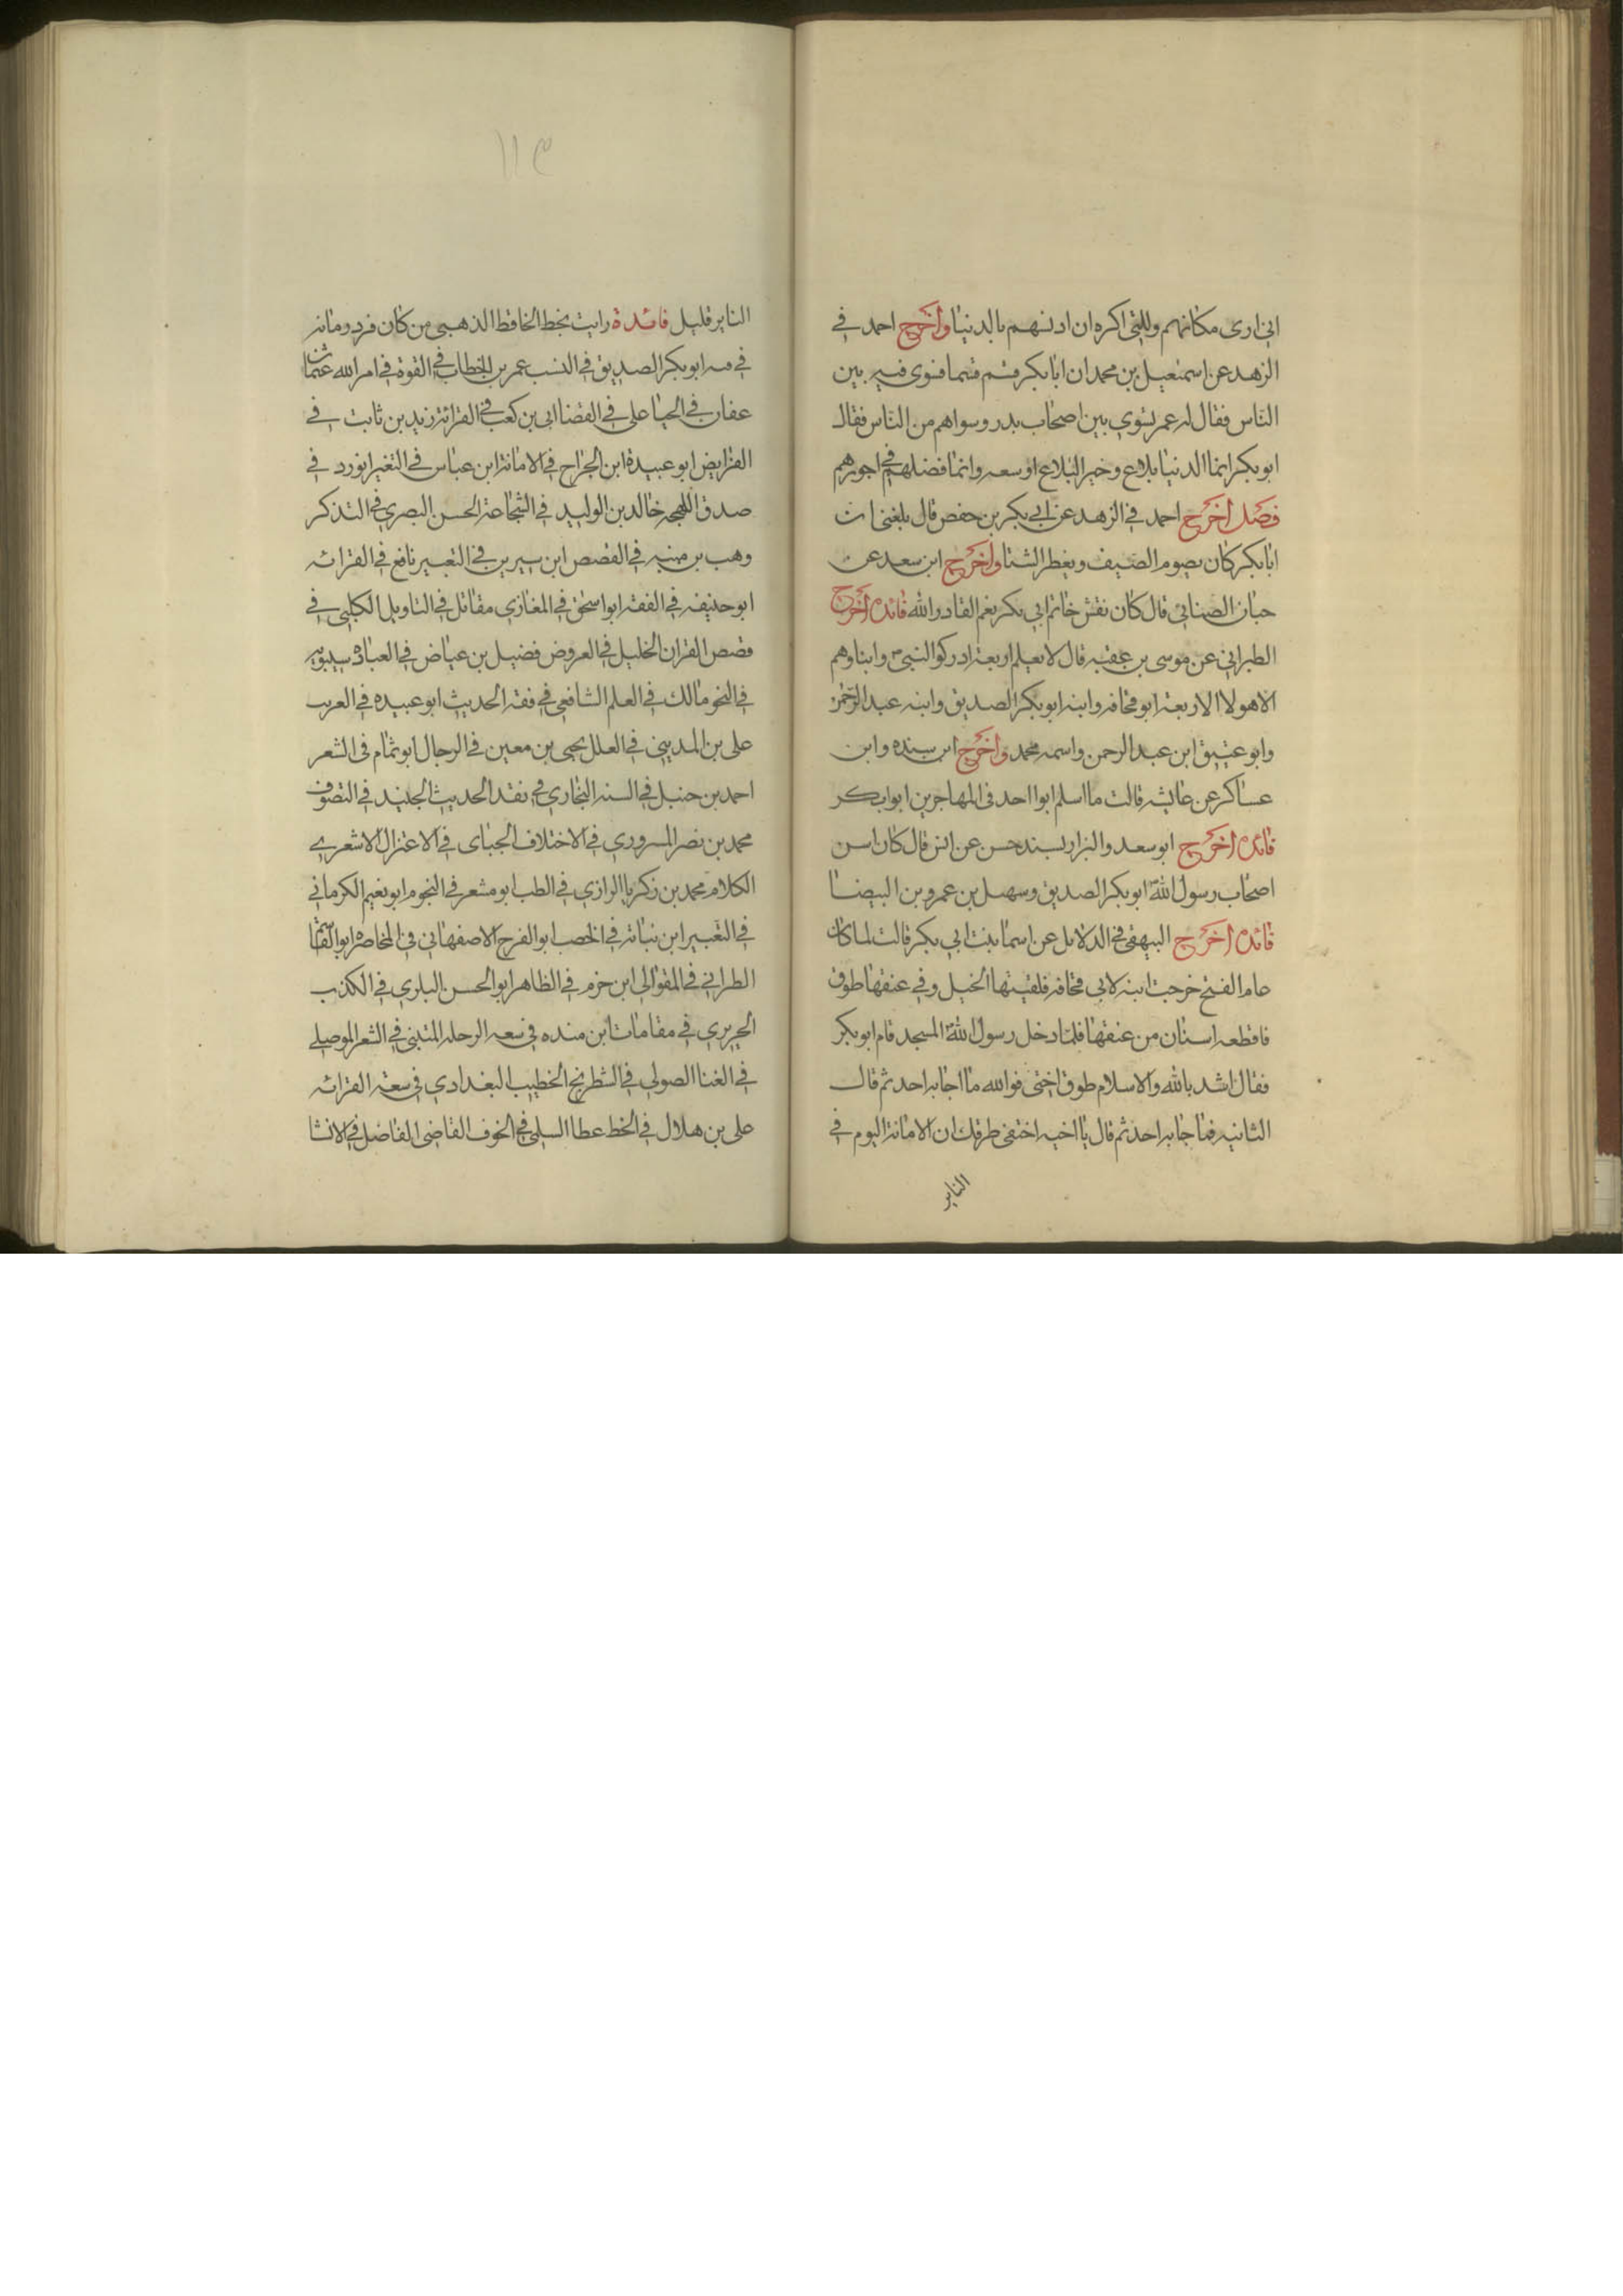 اني ارى مكانهم ولكني اكره ان ادنسهم بالدنيا واخرج احمد في
الزهد عن اسمعيل بن محمد ان ابابكر قسم قسما فسوى فيه بين
الناس فقال له عمر تسوي بين اصحاب بدر وسواهم من الناس فقال
ابوبكر انما الدنيا بلاغ وخير البلاغ اوسعه وانما فضلهم في اجورهم
فصل اخرج احمد في الزهد عن ابي بكر بن حفص قال بلغني ان
ابابكر كان يصوم الصيف ويفطر الشتا واخرج ابن سعد عن
حبان الصنابي قال كان نقش خاتم ابي بكر نعم القادر الله فائده اخرج
الطبراني عن موسى بن عقبه قال لا نعلم اربعة ادركوا النبي وابناوهم
الا هولا الاربعة ابو قحافه وابنه ابوبكر الصديق وابنه عبد الرحمن
وابو عتيق ابن عبد الرحمن واسمه محمد واخرج ابن منده وابن
عساكر عن عايشه قالت ما اسلم ابوا احد في المهاجرين ابوابكر
فائده اخرج ابو سعد والبزار بسند حسن عن انس قال كان اسن
اصحاب رسول الله ابوبكر الصديق وسهيل بن عمرو بن البيضا
فائده اخرج البيهقي في الدلايل عن اسما بنت ابي بكر قالت لما كان
عام الفتح خرجت ابنه لابي قحافه فلقيتها الخيل وفي عنقها طوق
فاقطعه اسنان من عنقها فلما دخل رسول الله المسجد قام ابوبكر
فقال انشد بالله والاسلام طوق اختي فوالله ما اجابه احد ثم قال
الثانيه فما جابه احد ثم قال يا اخيه احتفي طرقك ان الامانة اليوم في
الناير
١١٣
الناير قليل فائدة رايت بخط الحافظ الذهبي من كان فرد زمانه
في فنه ابوبكر الصديق في النسب عمر بن الخطاب في القوة في امر الله عثمان
عفان في الحيا علي في القضا ابي بن كعب في القرائة زيد بن ثابت في
الفرايض ابو عبيدة ابن الجراح في الامانة ابن عباس في التفسير ابوذر في
صدق اللهجه خالد بن الوليد في الشجاعة الحسن البصري في التذكر
وهب بن منبه في القصص ابن سيرين في التعبير نافع في القرائه
ابو حنيفه في الفقه ابو اسحق في المغازي مقاتل في التاويل الكلبي في
قصص القران الخليل في العروض فضيل بن عياض في العباده سيبويه
في النحو مالك في العلم الشافعي في فقه الحديث ابو عبيده في العرب
علي بن المديني في العلل يحيى بن معين في الرجال ابو تمام في الشعر
احمد بن حنبل في السنه البخاري في نقد الحديث الجنيد في التصوف
محمد بن نصر المسروري في الاختلاف الجباى في الاعتزال الاشعري
الكلام محمد بن زكريا الرازي في الطب ابو مشعر في النجوم ابو نعيم الكرماني
في التعبير ابن نباتة في الخصب ابو الفرج الاصفهاني في المحاضره ابو القاسم
الطراني في المقوالي ابن حزم في الظاهر ابو الحسن البلري في الكذب
الحريري في مقامات ابن منده في سعه الرحله المتنبي في الشعر الموصلي
في الغنا الصولي في الشطرنج الخطيب البغدادي في سعة القرائه
علي بن هلال في الخط عطا السلمي في الخوف القاضي الفاضل في الانشا